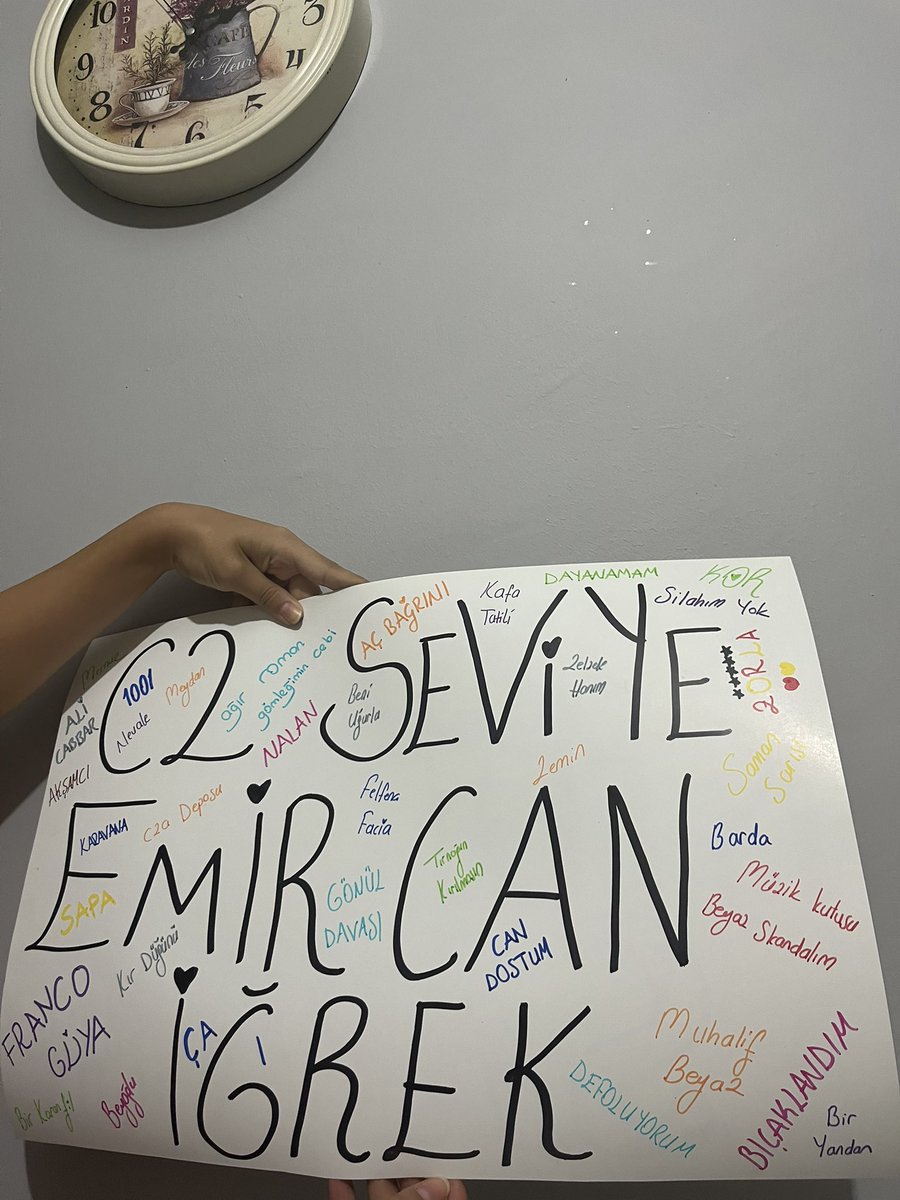 10
3
9
4
8
5
7
6
CAFÉ
des Fleurs
C2 SEVİYE
EMİR CAN
İĞREK
DAYANAMAM
KOR
Kafa
Tatili
Silahım Yok
AÇ BAĞRINI
ağır roman
gömleğimin cebi
1001
Meydan
ALİ
CABBAR
Nevale
NALAN
Beni
Uğurla
Zebele
Hanım
ZORLA
AKŞAMCI
Saman
Sarısı
Zemin
Felfena
Facia
KARAVANA
Cza Deposu
Barda
Tırnağın
Kırılmasın
GÖNÜL
DAVASI
SAPA
Müzik kutusu
Beyaz Skandalım
Kır Düğünü
CAN
DOSTUM
FRANCO
GÜYA
ÇA
I
Muhalif
Beyaz
BIÇAKLANDIM
DEFOLUYORUM
Bir Karanfil
Beyoğlu
Bir
Yandan